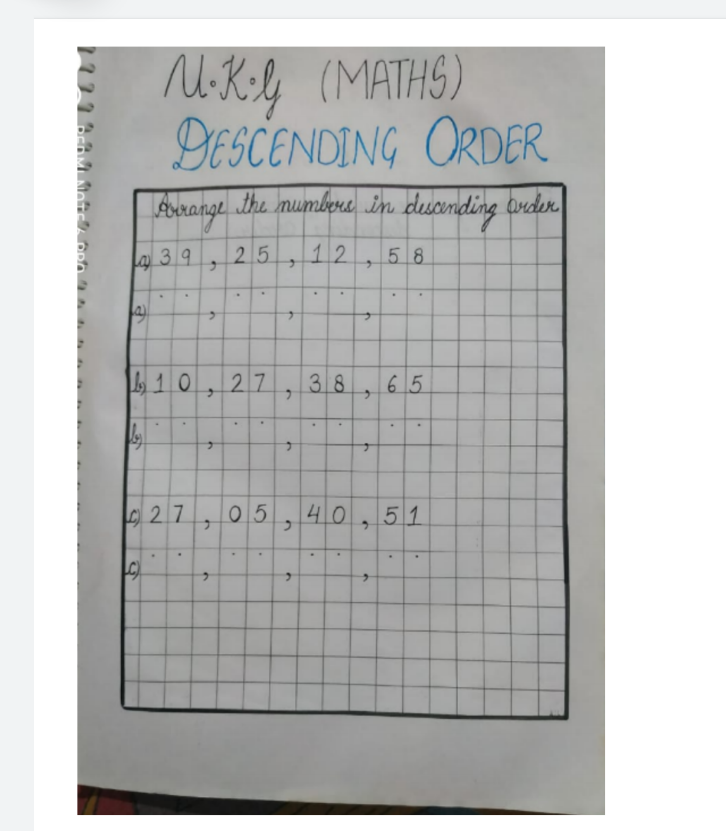 U.K.G (MATHS)
DESCENDING ORDER
Arrange the numbers in descending order
a) 39, 25, 12, 58
a) , , ,
b) 10, 27, 38, 65
b) , , ,
c) 27, 05, 40, 51
c) , , ,
REDMI NOTE 6 PRO